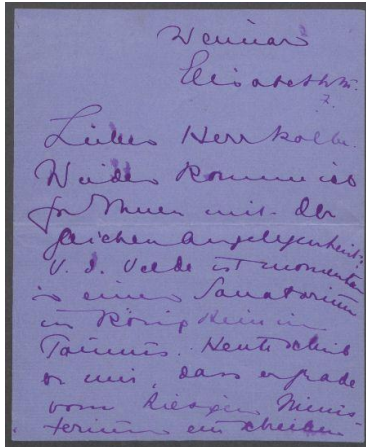 Weimar
Elisabethstr.
2.
Lieber Herr Kolbe.
Wieder komme ich
zu Ihnen mit der
gleichen Angelegenheit:
V. d. Velde ist momentan
in einem Sanatorium
in Königstein im
Taunus. Heute schrieb
er mir, dass er grade
vom hiesigen Minis-
terium ein